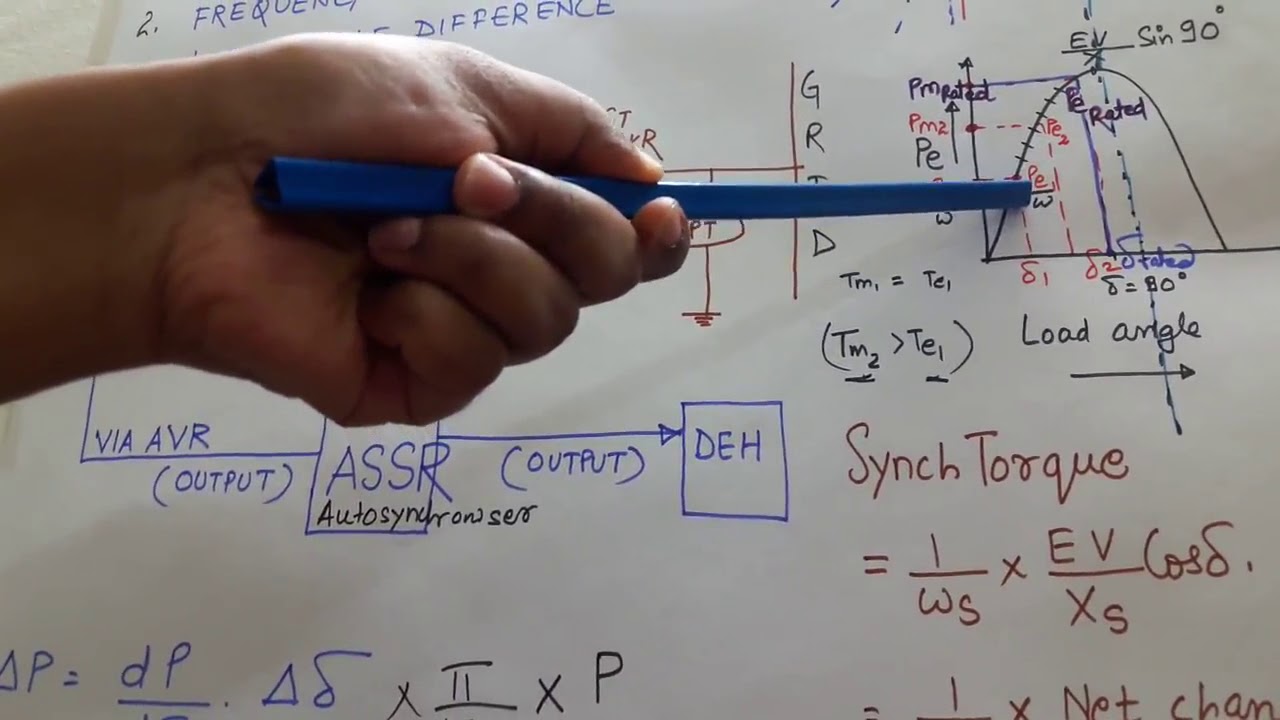 2. FREQUENCY
DIFFERENCE
EV Sin 90°
X
G
R
D
Pm Rated
Pe Rated
Pm2
Pe2
Pe
Pe1
ω
ω
PT
δ1
δ2
δrated
δ = 90°
Tm1 = Te1
(Tm2 > Te1)
Load angle
VIA AVR
(OUTPUT)
ASSR
Autosynchrowser
(OUTPUT)
DEH
Synch Torque
= 1/ωs × EV/Xs Cosδ.
ΔP = dP . Δδ × π × P
= 1 × Net chan